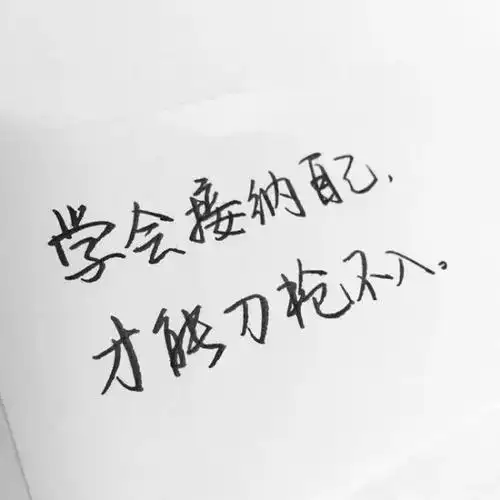 学会接纳自己，
才能刀枪不入。